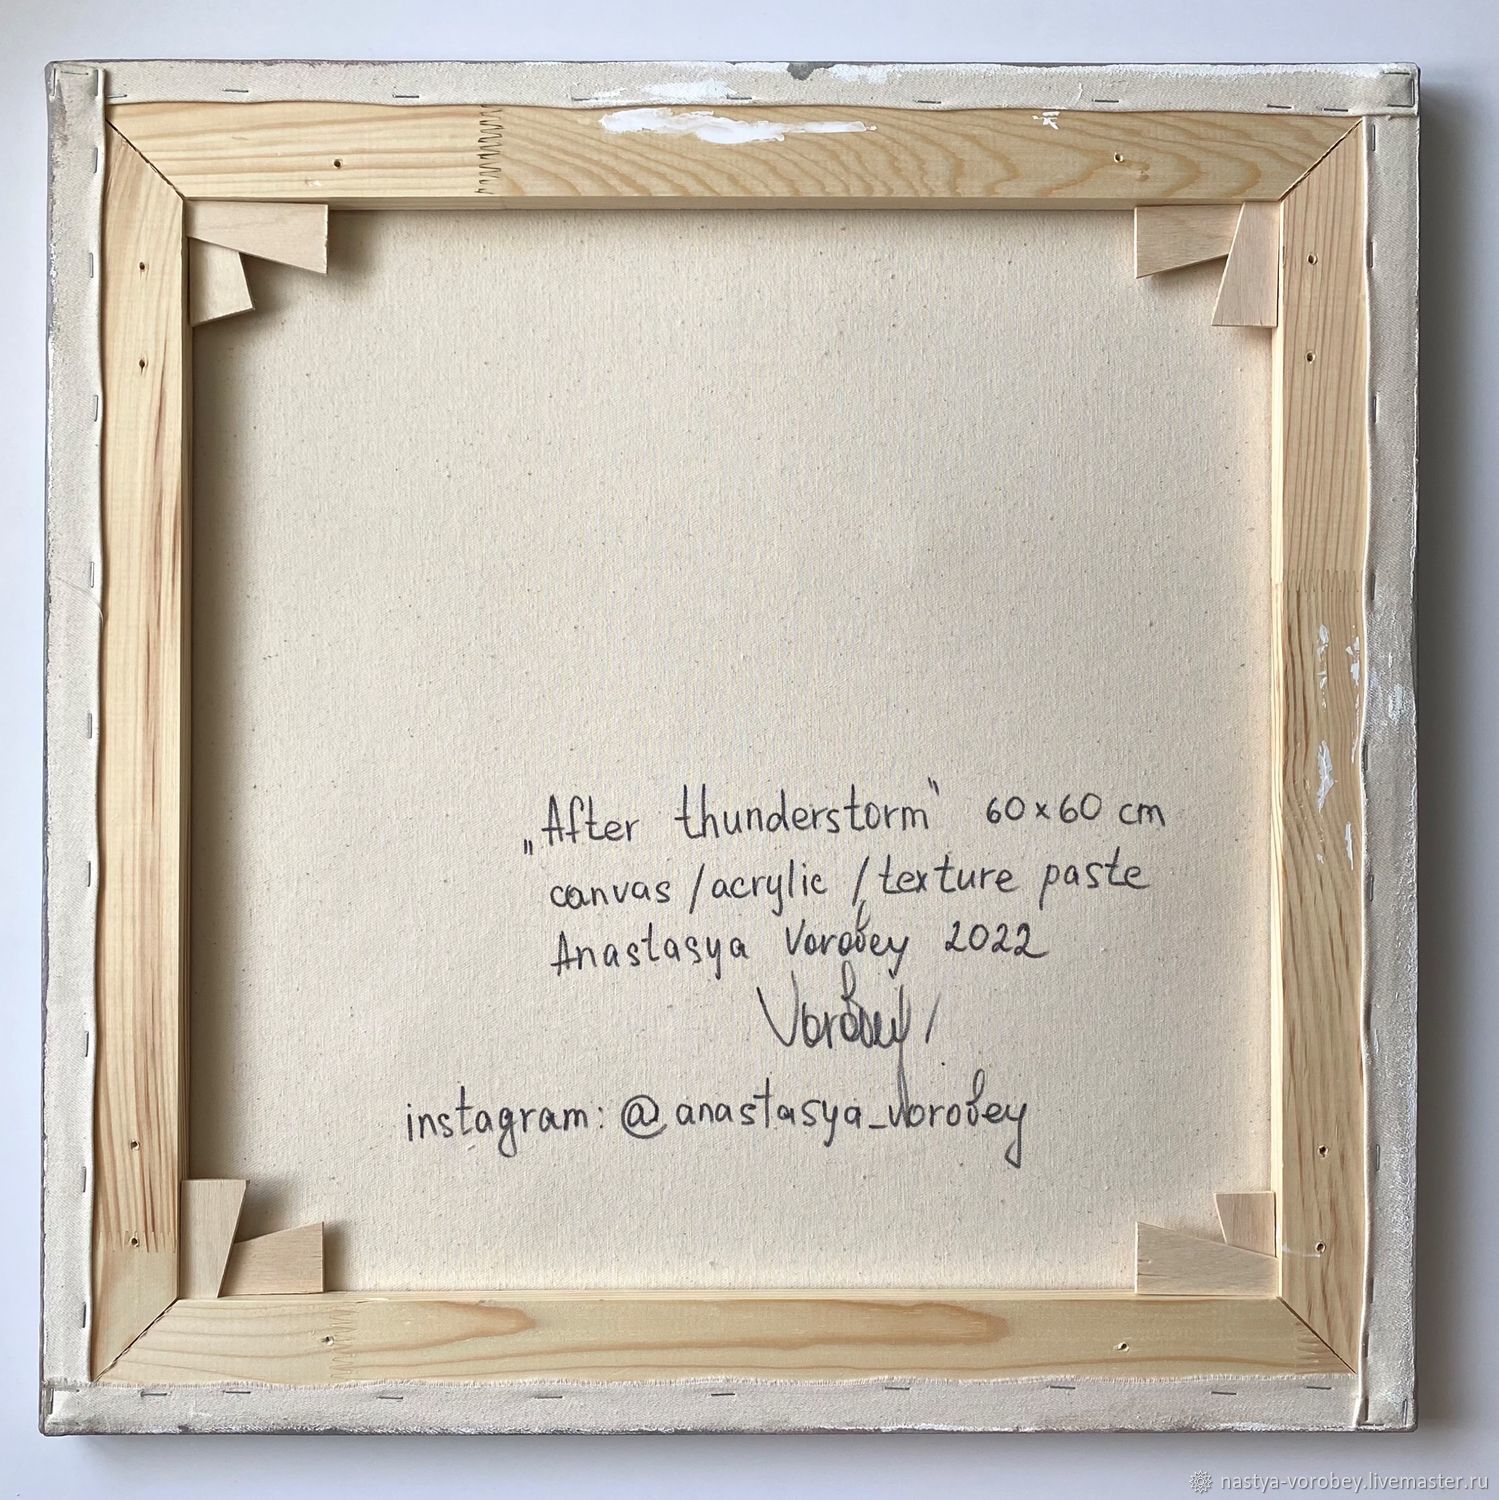 „After thunderstorm" 60x60 cm
canvas / acrylic / texture paste
Anastasya Vorobey 2022
Vorobey
instagram: @anastasya_vorobey
nastya-vorobey.livemaster.ru